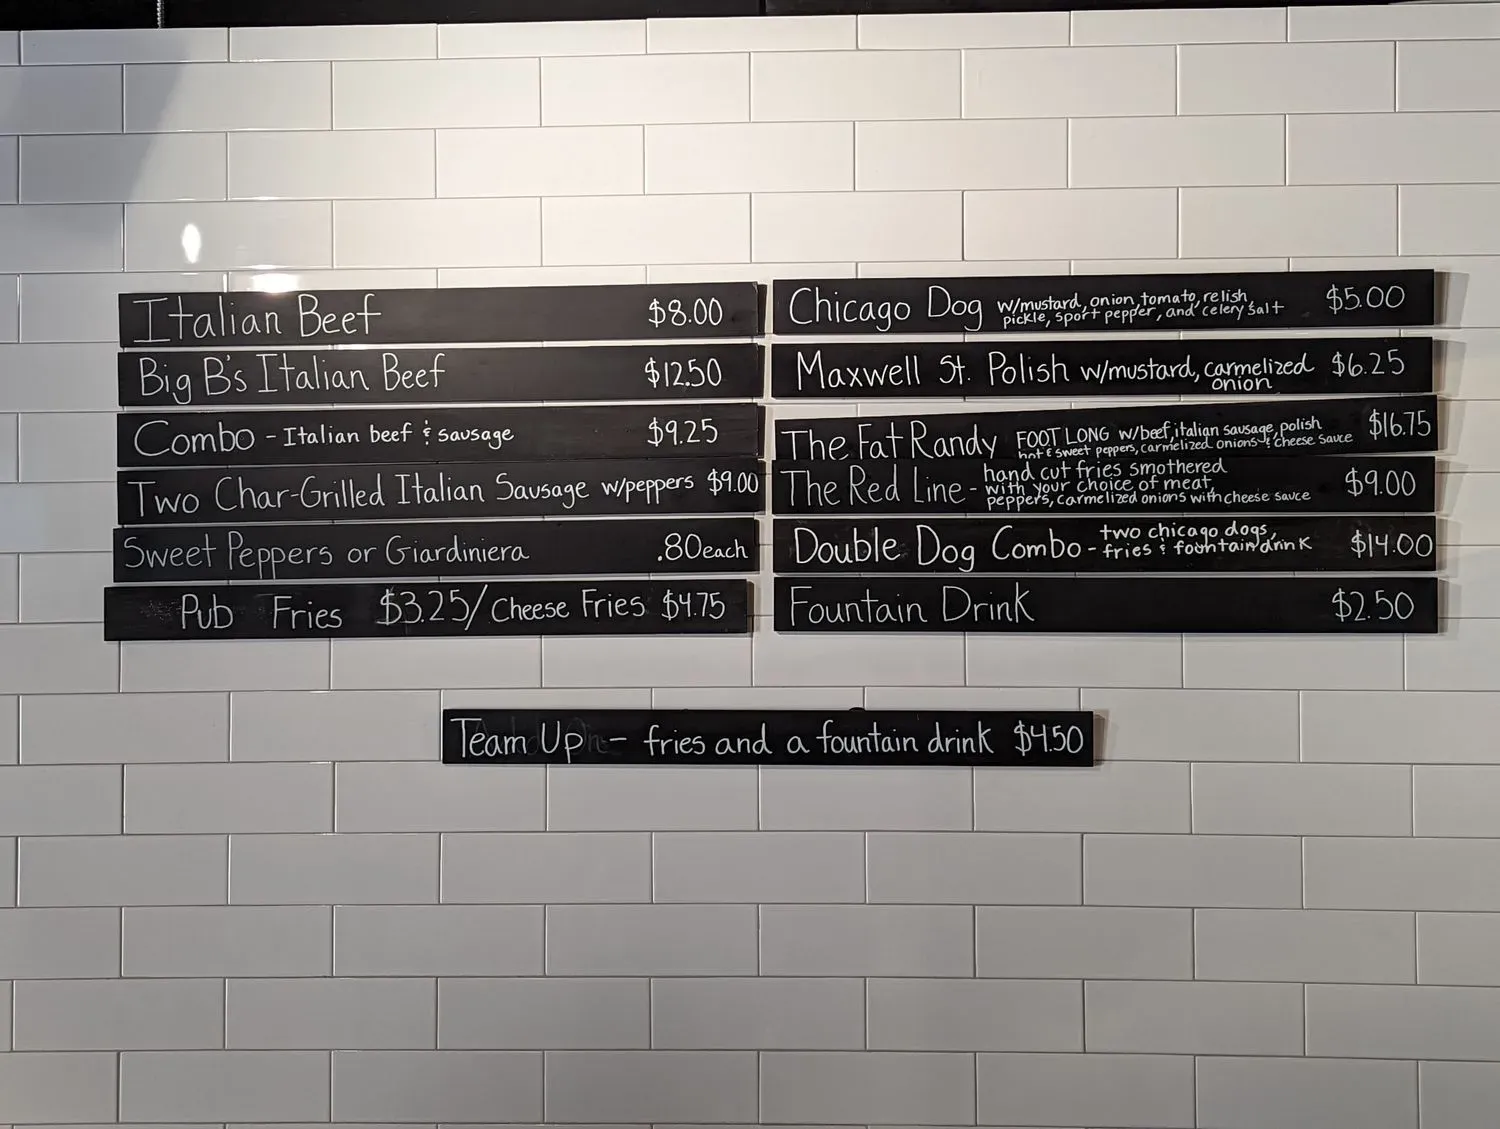 Italian Beef $8.00
Big B's Italian Beef $12.50
Combo - Italian beef & sausage $9.25
Two Char-Grilled Italian Sausage w/peppers $9.00
Sweet Peppers or Giardiniera .80 each
Pub Fries $3.25/Cheese Fries $4.75
Chicago Dog w/mustard, onion, tomato, relish,
pickle, sport pepper, and celery salt $5.00
Maxwell St. Polish w/mustard, carmelized
onion $6.25
The Fat Randy FOOT LONG w/beef, italian sausage, polish
hot & sweet peppers, carmelized onions & cheese sauce $16.75
The Red Line - hand cut fries smothered
with your choice of meat,
peppers, carmelized onions with cheese sauce $9.00
Double Dog Combo - two chicago dogs,
fries & fountain drink $14.00
Fountain Drink $2.50
Team Up - fries and a fountain drink $4.50